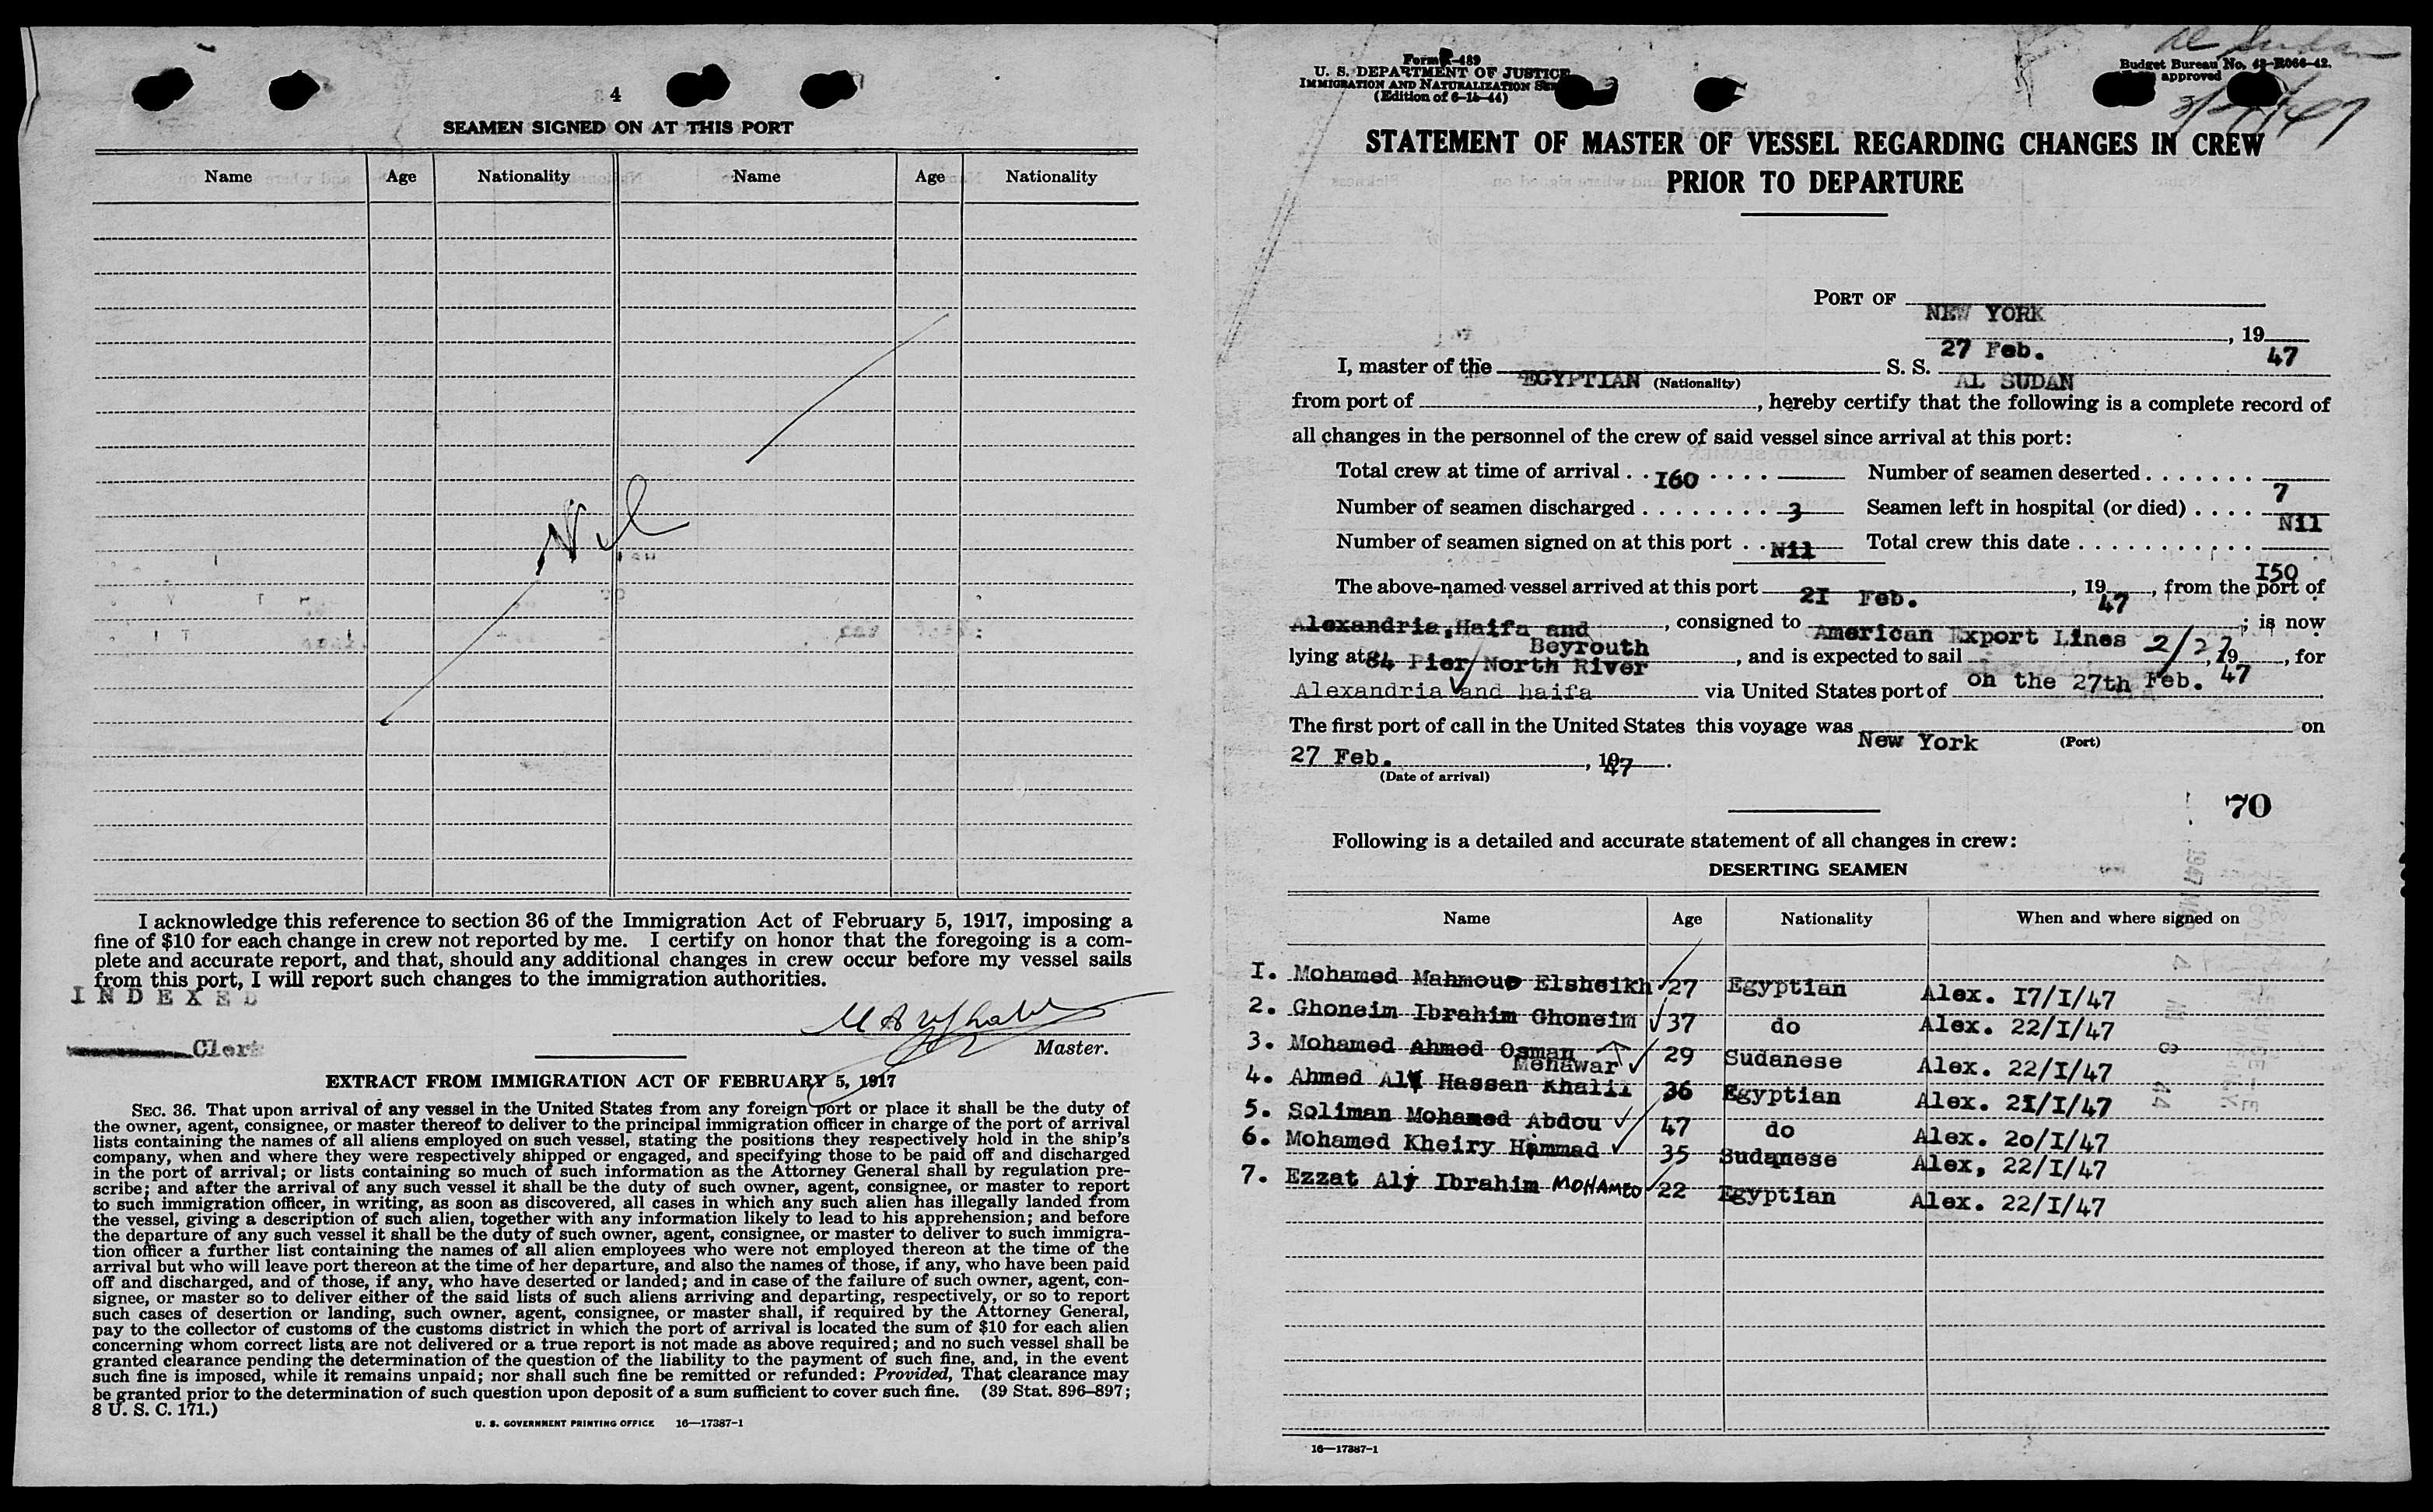 4
SEAMEN SIGNED ON AT THIS PORT
Name Age Nationality Name Age Nationality
Nil
I acknowledge this reference to section 36 of the Immigration Act of February 5, 1917, imposing a
fine of $10 for each change in crew not reported by me. I certify on honor that the foregoing is a com-
plete and accurate report, and that, should any additional changes in crew occur before my vessel sails
from this port, I will report such changes to the immigration authorities.
INDEXED
Clerk
Master.
EXTRACT FROM IMMIGRATION ACT OF FEBRUARY 5, 1917
SEC. 36. That upon arrival of any vessel in the United States from any foreign port or place it shall be the duty of
the owner, agent, consignee, or master thereof to deliver to the principal immigration officer in charge of the port of arrival
lists containing the names of all aliens employed on such vessel, stating the positions they respectively hold in the ship's
company, when and where they were respectively shipped or engaged, and specifying those to be paid off and discharged
in the port of arrival; or lists containing so much of such information as the Attorney General shall by regulation pre-
scribe; and after the arrival of any such vessel it shall be the duty of such owner, agent, consignee, or master to report
to such immigration officer, in writing, as soon as discovered, all cases in which any such alien has illegally landed from
the vessel, giving a description of such alien, together with any information likely to lead to his apprehension; and before
the departure of any such vessel it shall be the duty of such owner, agent, consignee, or master to deliver to such immigra-
tion officer a further list containing the names of all alien employees who were not employed thereon at the time of the
arrival but who will leave port thereon at the time of her departure, and also the names of those, if any, who have been paid
off and discharged, and of those, if any, who have deserted or landed; and in case of the failure of such owner, agent, con-
signee, or master so to deliver either of the said lists of such aliens arriving and departing, respectively, or so to report
such cases of desertion or landing, such owner, agent, consignee, or master shall, if required by the Attorney General,
pay to the collector of customs of the customs district in which the port of arrival is located the sum of $10 for each alien
concerning whom correct lists are not delivered or a true report is not made as above required; and no such vessel shall be
granted clearance pending the determination of the question of the liability to the payment of such fine, and, in the event
such fine is imposed, while it remains unpaid; nor shall such fine be remitted or refunded: Provided, That clearance may
be granted prior to the determination of such question upon deposit of a sum sufficient to cover such fine. (39 Stat. 896–897;
8 U. S. C. 171.)
U. S. GOVERNMENT PRINTING OFFICE 16—17387-1
Al Sudan
Form I-489
U. S. DEPARTMENT OF JUSTICE
IMMIGRATION AND NATURALIZATION
(Edition of 6-15-44)
Budget Bureau No. 43-R066-42.
approved
STATEMENT OF MASTER OF VESSEL REGARDING CHANGES IN CREW
PRIOR TO DEPARTURE
PORT OF NEW YORK
27 Feb. , 1947
I, master of the EGYPTIAN (Nationality) S. S. AL SUDAN
from port of , hereby certify that the following is a complete record of
all changes in the personnel of the crew of said vessel since arrival at this port:
Total crew at time of arrival . . I60 . . . . Number of seamen deserted . . . . . . . 7
Number of seamen discharged . . . . . . . . 3 Seamen left in hospital (or died) . . . . Nil
Number of seamen signed on at this port . . Nil Total crew this date . . . . . . . . . . . I50
The above-named vessel arrived at this port 2I Feb. , 1947, from the port of
Alexandria,Haifa and Beyrouth, consigned to American Export Lines ; is now
lying at 84 Pier North River, and is expected to sail 2/27, 19 47, for
Alexandria and haifa via United States port of on the 27th Feb.
The first port of call in the United States this voyage was New York (Port) on
27 Feb. , 1947.
(Date of arrival)
70
Following is a detailed and accurate statement of all changes in crew:
DESERTING SEAMEN
Name Age Nationality When and where signed on
I. Mohamed Mahmoud Elsheikh 27 Egyptian Alex. I7/I/47
2. Ghoneim Ibrahim Ghoneim 37 do Alex. 22/I/47
3. Mohamed Ahmed Osman Menawar 29 Sudanese Alex. 22/I/47
4. Ahmed Aly Hassan Khalil 36 Egyptian Alex. 2I/I/47
5. Soliman Mohamed Abdou 47 do Alex. 20/I/47
6. Mohamed Kheiry Hammad 35 Sudanese Alex, 22/I/47
7. Ezzat Aly Ibrahim MOHAMED 22 Egyptian Alex. 22/I/47
16—17387-1